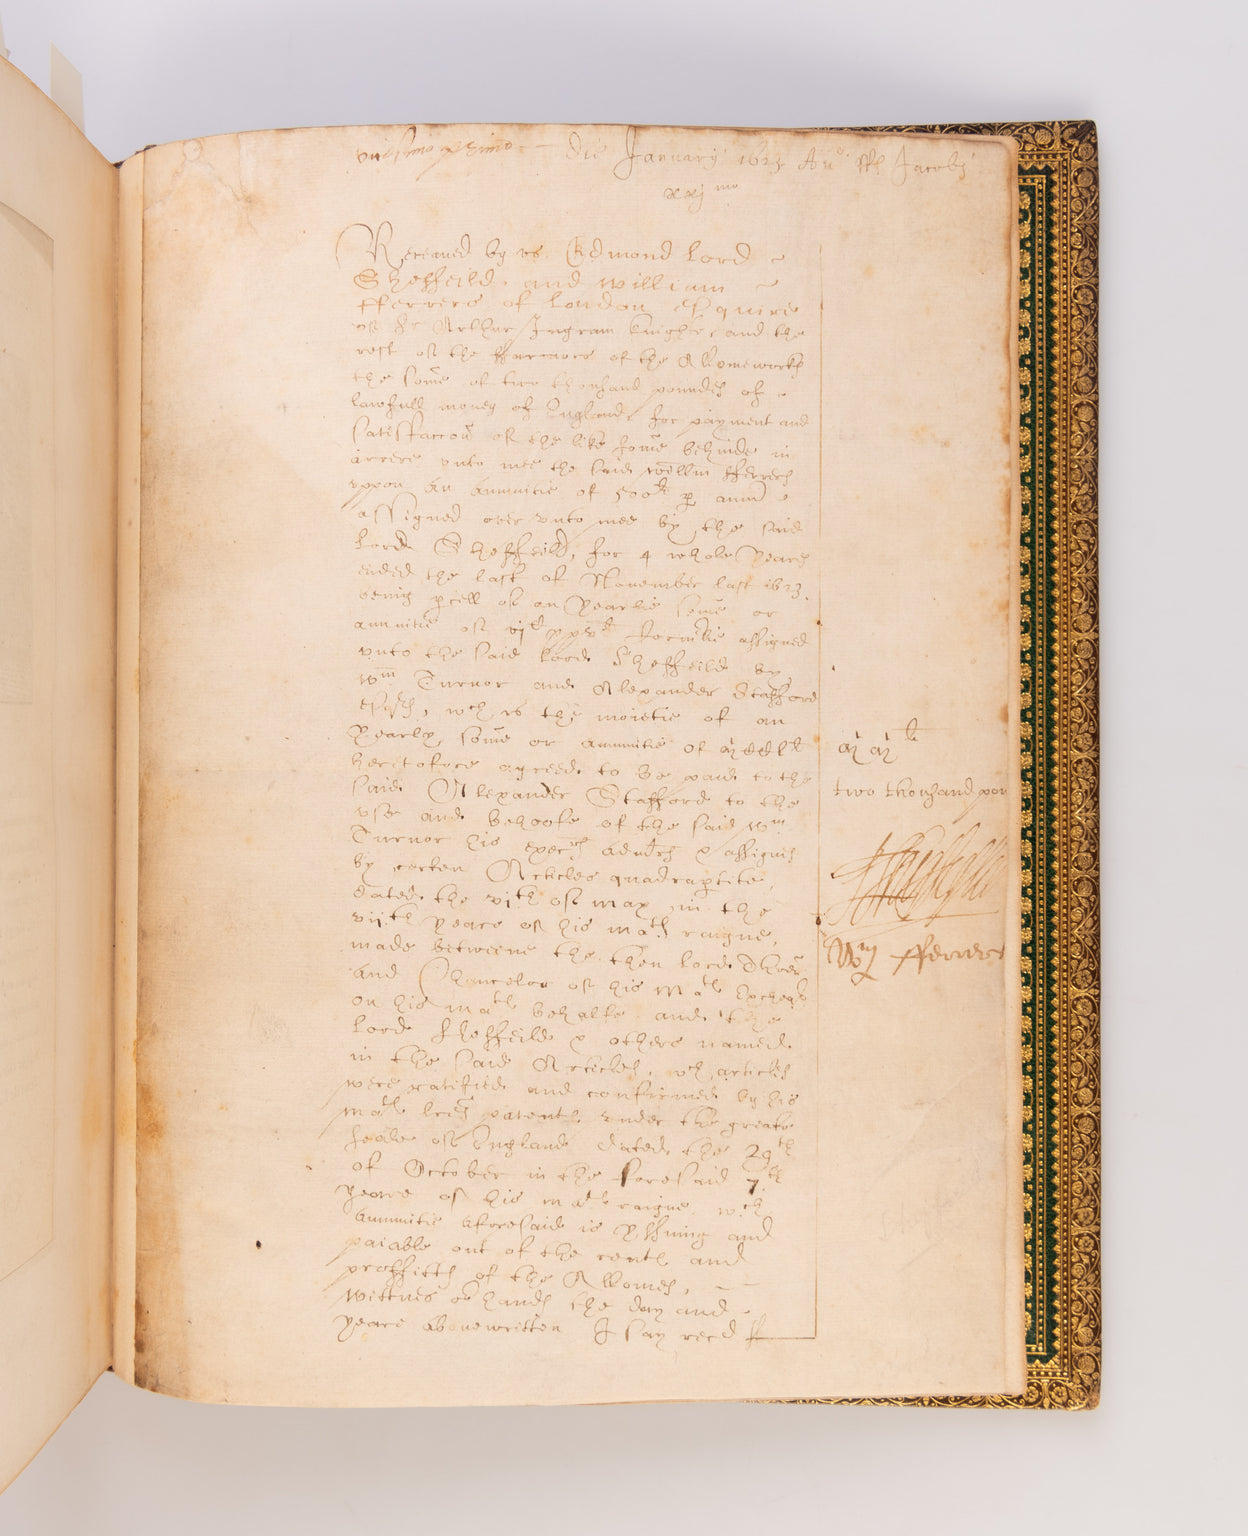 die January 1623 Ano RRs Jacobi
xxjmo
Receaued by vs Edmond Lord
Sheffeild and William
fferrers of London esquire
of Sr Arthur Ingram knighte, and the
rest of the ffarmors of the Allomeworks
the some of two thousand poundes of
lawfull money of England, for payment and
satisfaccon of the like some behinde in
arrere vnto mee the said Willm fferrers
vppon an Annuitie of 500li p annu
assigned over vnto mee by the said
Lord Sheffeild, for 4 whole yeares
ended the last of November last 1623.
being pcell of an yearlie some or
annuitie of assigned
vnto the said Lord Sheffeild by
Wm Turnor and Alexander Stafford
esqrs, wch is the moietie of an
yearly some or Annuitie of
heretofore agreed to be paid to the
said Alexander Stafford to the
vse and behoofe of the said Wm
Turnor his execrs admrs & assignes
by certen Articles quadraptite,
dated the vjth of May in the
vijth yeare of his mats raigne,
made betweene the then Lord Threr
and Chancelor of his Mats Excheqr
on his mats behalfe and the
Lord Sheffeild & others named
in the said Articles, wch articles
were ratified and confirmed by his
mats lres patents vnder the greate
seale of England dated the 29th
of October in the foresaid 7th
yeare of his mats raigne, wch
Annuitie aforesaid is yssuing and
paiable out of the rents and
proffitts of the Allomes,
wittnes or hands the day and
yeare abouewritten I say recd
two thousand pou
Wm fferrers